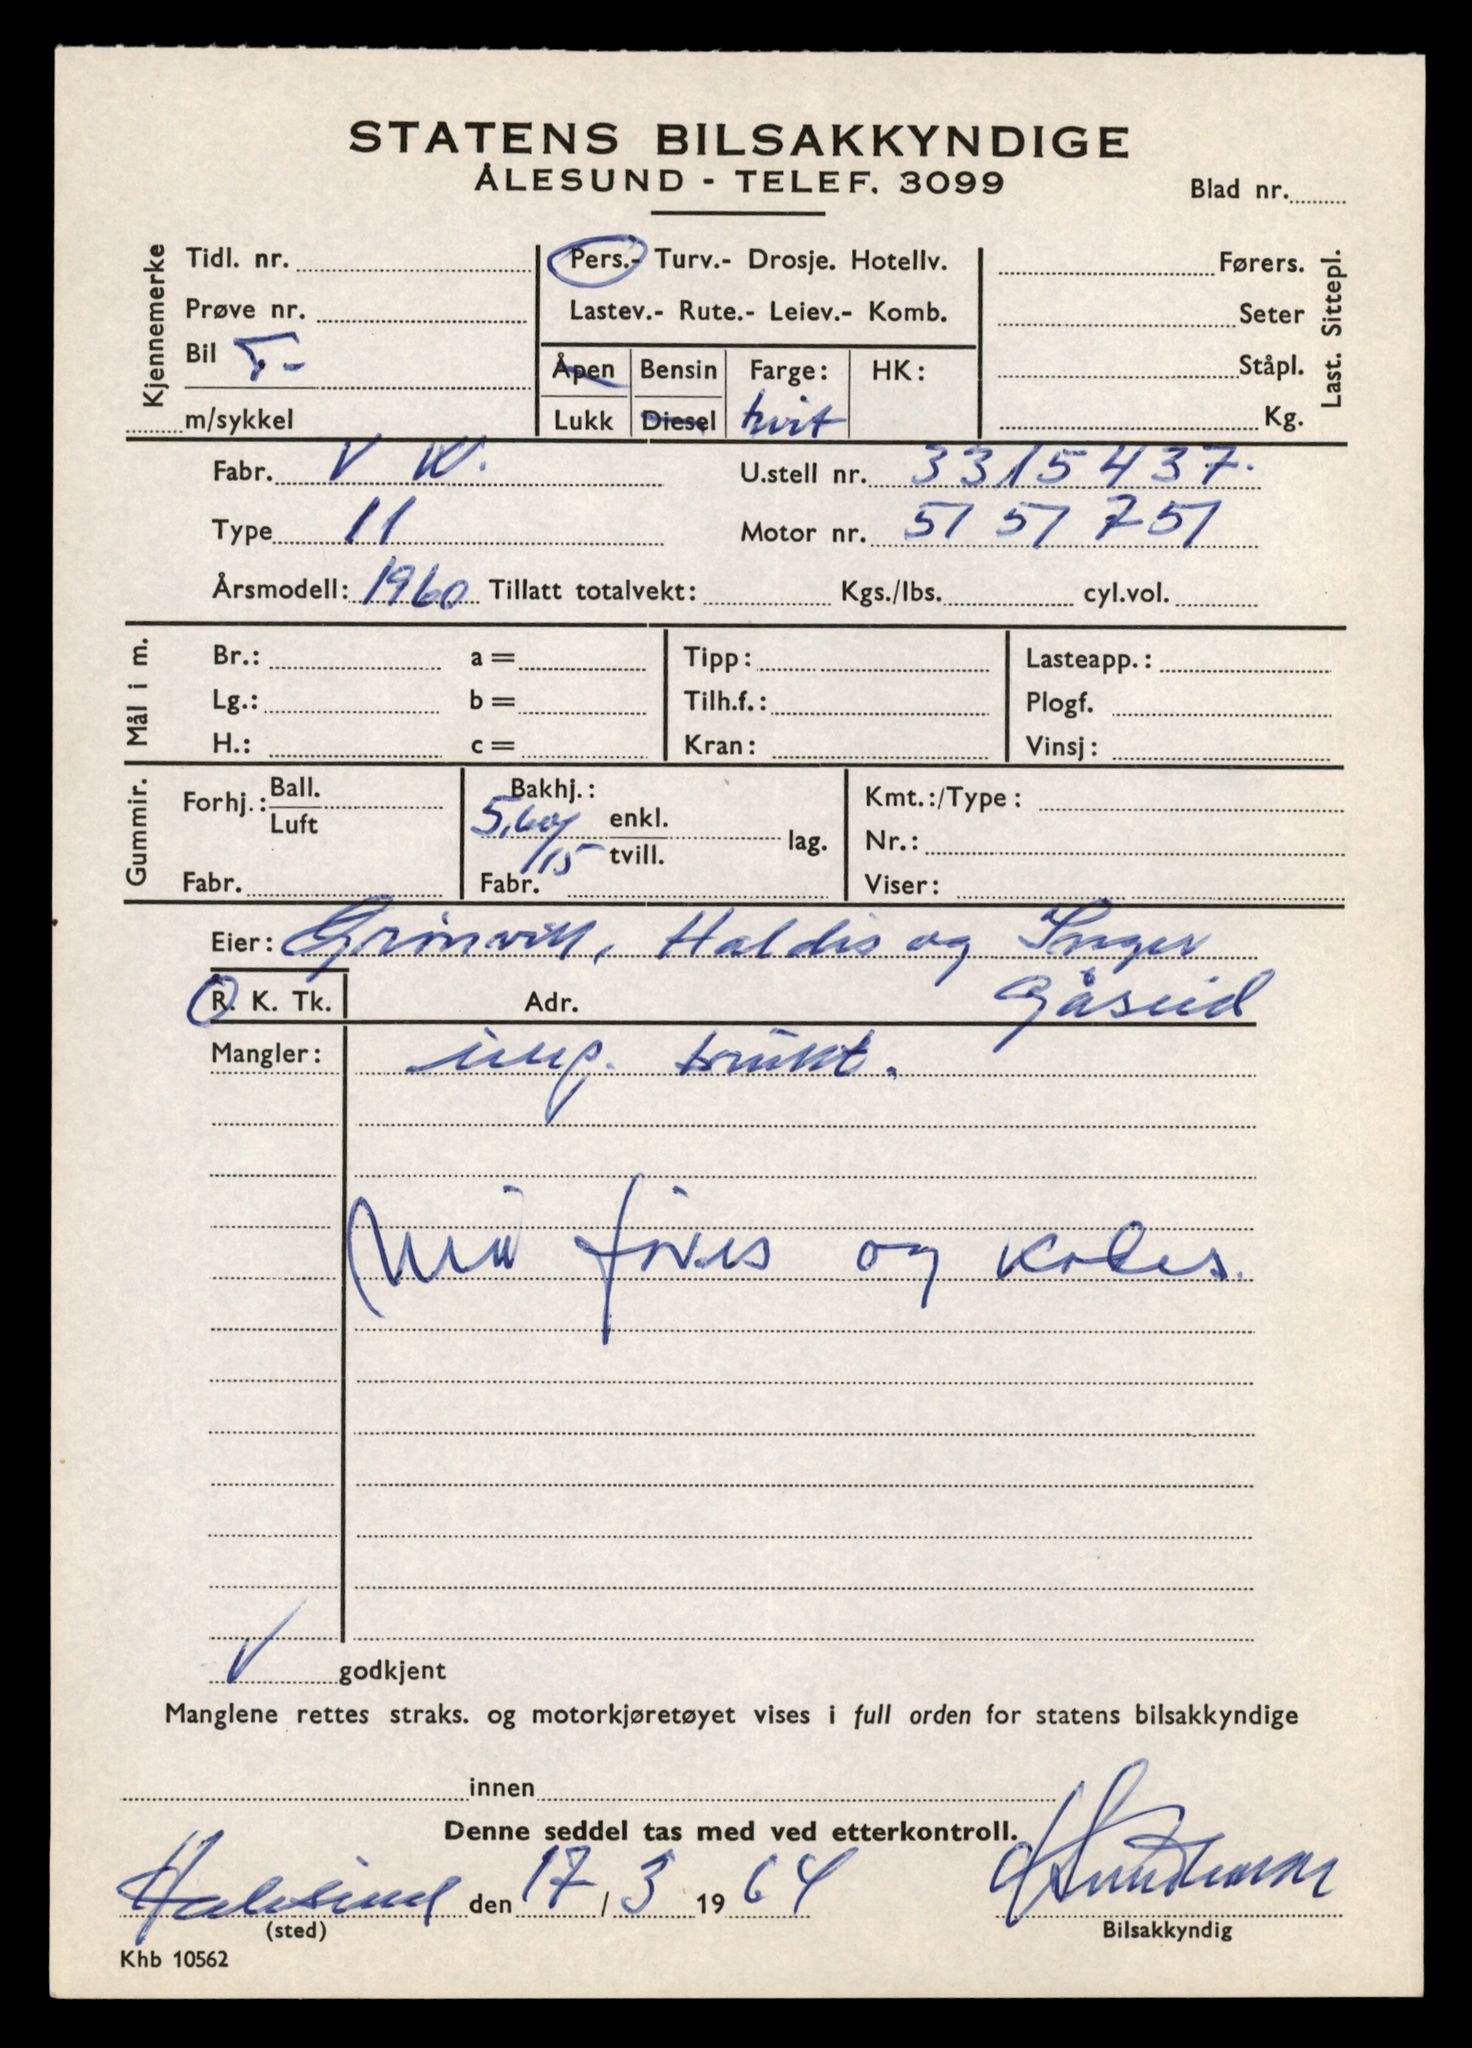 STATENS BILSAKKYNDIGE
ÅLESUND - TELEF. 3099
Blad nr.
Kjennemerke
Tidl. nr.
Prøve nr.
Bil T-
m/sykkel
Pers.- Turv.- Drosje. Hotellv.
Lastev.- Rute.- Leiev.- Komb.
Åpen Bensin Farge: HK:
Lukk Diesel hvit
Førers.
Seter
Ståpl.
Kg.
Last. Sittepl.
Fabr. V W. U.stell nr. 3315437.
Type 11 Motor nr. 5157751
Årsmodell: 1960 Tillatt totalvekt: Kgs./lbs. cyl.vol.
Mål i m.
Br.: a = Tipp: Lasteapp.:
Lg.: b = Tilh.f.: Plogf.
H.: c = Kran: Vinsj:
Gummir.
Forhj.: Ball. Luft
Fabr.
Bakhj.:
5,60/15 enkl. tvill. lag.
Fabr.
Kmt.:/Type:
Nr.:
Viser:
Eier: Grønvik, Haldis og Inger
R. K. Tk. Adr. Gåseid
Mangler: imp. brukt.
Må føres og koles.
✓ godkjent
Manglene rettes straks. og motorkjøretøyet vises i full orden for statens bilsakkyndige
innen
Denne seddel tas med ved etterkontroll.
den 17/3 1964
(sted) Bilsakkyndig
Khb 10562